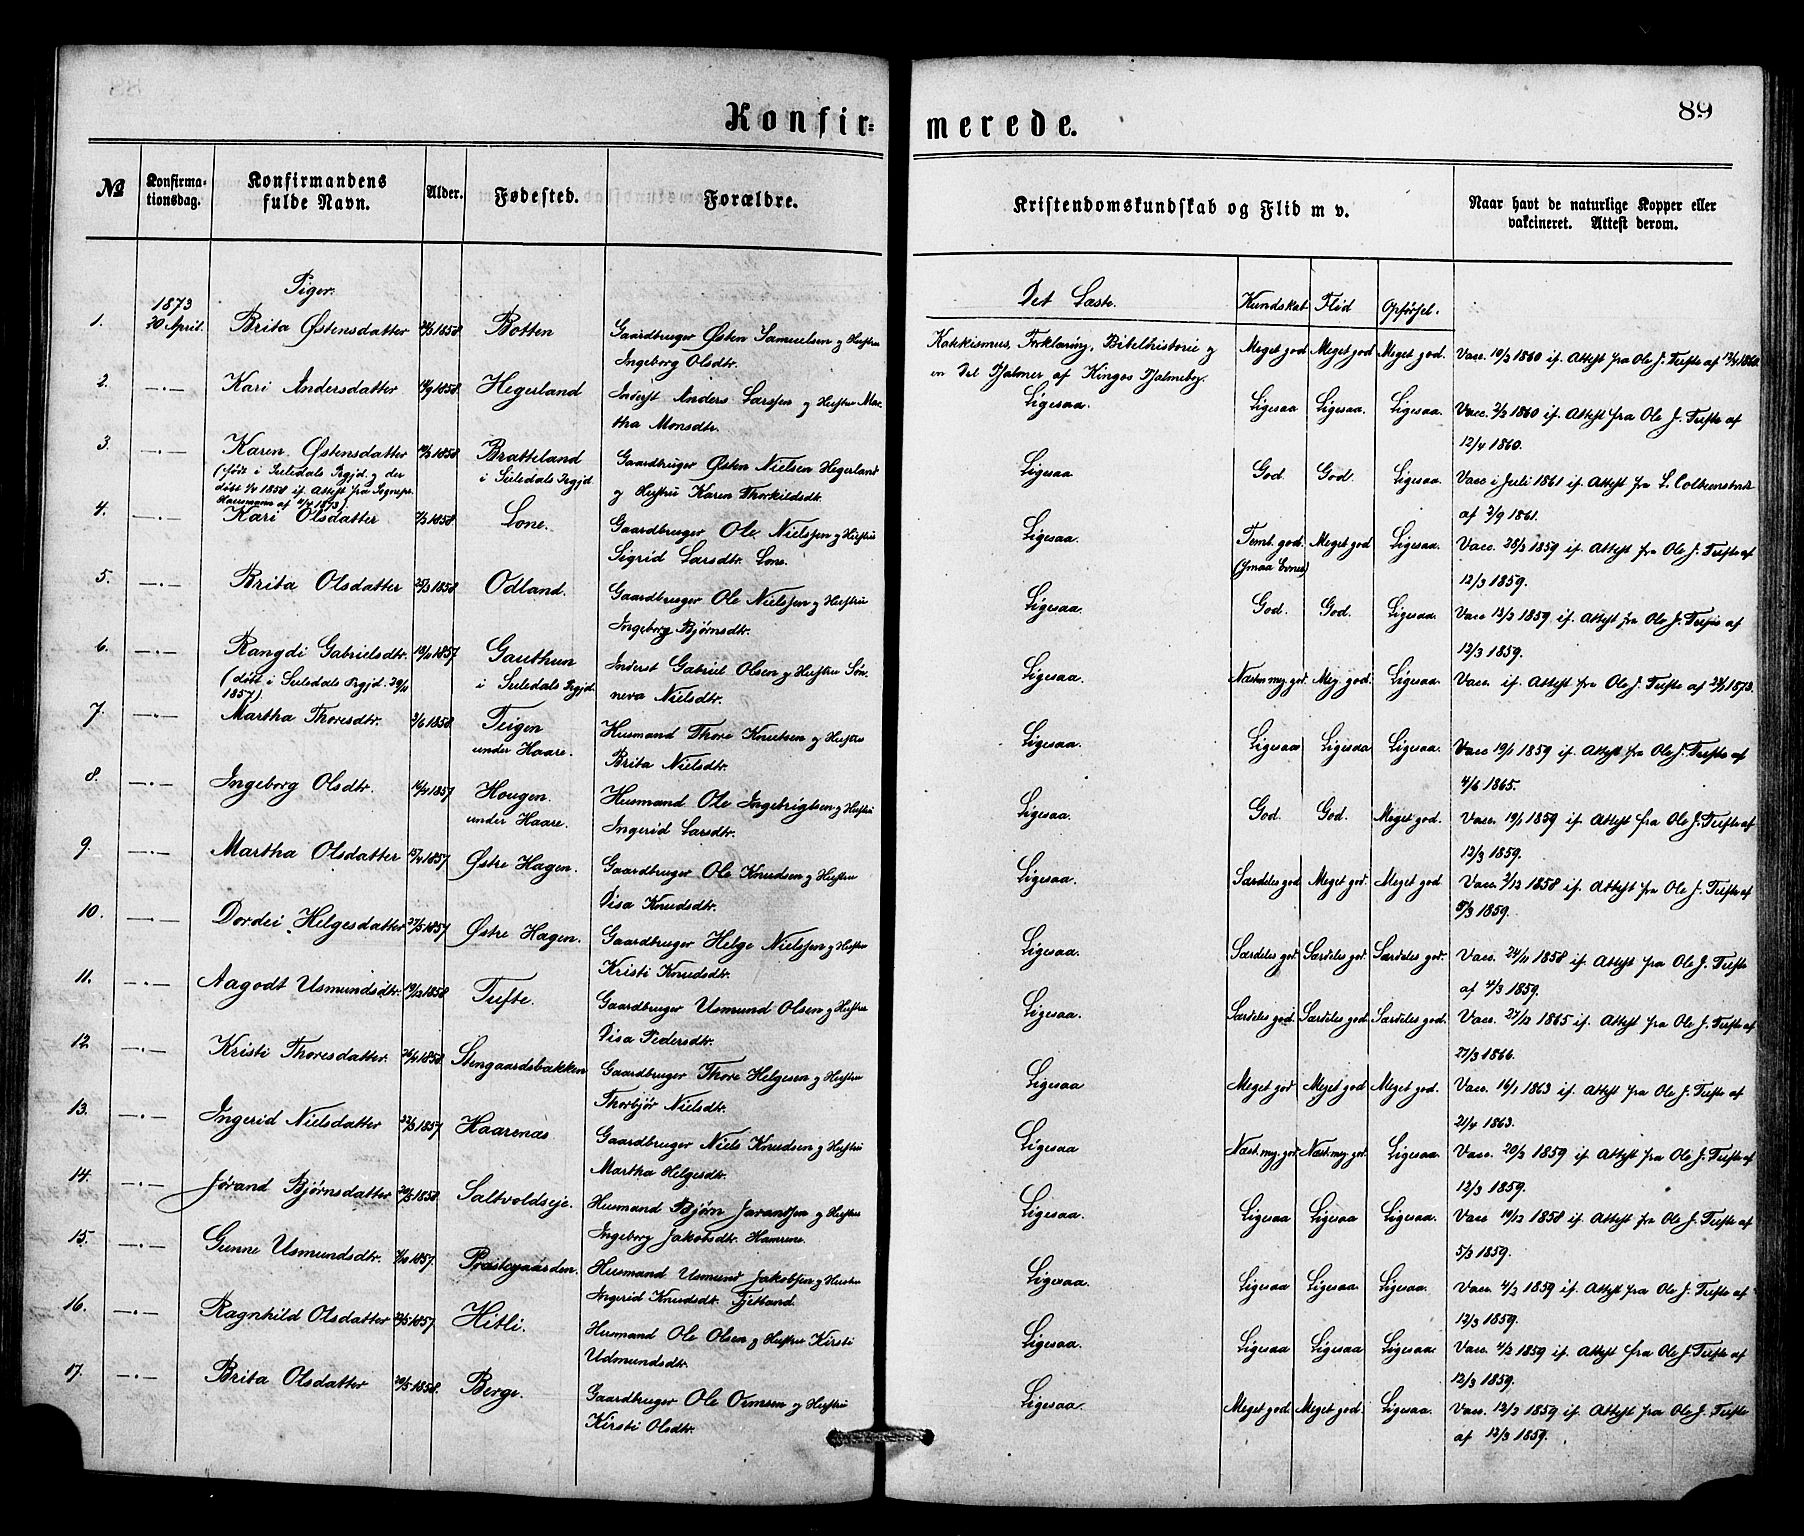 Konfir=
merede.
89
No
Konfirma-
tionsdag.
Konfirmandens
fulde Navn.
Alder.
Fødested.
Forældre.
Kristendomskundskab og Flid m v.
Naar havt de naturlige Kopper eller
vakcineret. Attest derom.
Piger.
Det Læste. Kundskab Flid Opførsel.
1873
1. 20 April. Brita Østensdatter 1858 Botten Gaardbruger Østen Samuelsen og Hustru
Ingeborg Olsdtr.
Katekismus, Forklaring, Bibelhistorie og
en Del Psalmer af Kingos Psalmebog. Meget god Meget god Meget god. Vacc. 19/3 1860 if. Attest fra Ole J. Tufte af 12/4 1860.
2. —.— Kari Andersdatter 1858. Hegerland Inderst Anders Larssen og Hustru Mar-
tha Monsdtr.
Ligesaa. Ligesaa Ligesaa. Ligesaa. Vacc. 2/3 1860 if. Attest fra Ole J. Tufte af
12/4 1860.
3. —.— Karen Østensdatter 1858 Bratteland
(født i Suledals Prgjd. og der
døbt 1858 if. Attest fra Sognepr.
af 1873)
i Suledals Prgjd Gaardbruger Østen Nielsen Hegerland
og Hustru Karen Thorkildsdtr.
Ligesaa God. God. Ligesaa. Vacc i Juli 1861 if. Attest fra L. Colbenstvedt
af 2/9 1861.
4. —.— Kari Olsdatter 1858. Lone. Gaardbruger Ole Nielssen og Hustru
Sigrid Larsdtr. Lone.
Ligesaa. Temt. god. Meget god Ligesaa. Vacc. 28/2 1859 if. Attest fra Ole J. Tufte af
(smaa Evner)
12/3 1859.
5. —.— Brita Olsdatter 1858 Odland. Gaardbruger Ole Nielssen og Hustru
Ingeborg Bjørnsdtr.
Ligesaa. God. God. Ligesaa. Vacc 13/2 1859 if. Attest fra Ole J. Tufte af
12/3 1859.
6. —.— Rangdi Gabrielsdtr. 1857 Gauthun
(døbt i Suledals Prgjd. 29/11
1857)
i Suledals Prgjd. Inderst Gabriel Olsen og Hustru Søn-
neva Nielsdtr.
Ligesaa. Næsten meg. god. Meg. god. Ligesaa. Vacc. if. Attest fra Ole J. Tufte af 1873.
7. —.— Martha Thoresdtr. 2/6 1858 Teigen
under Haare. Husmand Thore Knutsen og Hustru
Brita Nielsdtr.
Ligesaa. Ligesaa Ligesaa Ligesaa. Vacc 19/1 1859 if. Attest fra Ole J. Tufte af
4/6 1865.
8. —.— Ingeborg Olsdtr. 1857 Hougen.
under Haare. Husmand Ole Ingebrigtsen og Hustru
Ingerid Larsdtr.
Ligesaa. God. God. Meget god. Vacc. 19/1 1859 if. Attest fra Ole J. Tufte af
12/3 1859.
9. —.— Martha Olsdatter 1857 Østre Hagen. Gaardbruger Ole Knudsen og Hustru
Disa Knudsdtr.
Ligesaa. Særdeles god Meget god. Meget god Vacc. 2/12 1858 if. Attest fra Ole J. Tufte af
5/3 1859.
10. —.— Dordei Helgesdatter 27/5 1857 Østre Hagen. Gaardbruger Helge Nielssen og Hustru
Kristi Knudsdtr.
Ligesaa. Særdeles god Særdeles god Særdeles god. Vacc. 24/11 1858 if. Attest fra Ole J. Tufte
af 4/3 1859.
11. —.— Aagodt Usmundsdtr. 1858 Tufte. Gaardbruger Usmund Olsen og Hustru
Disa Pedersdtr.
Ligesaa. Særdeles god Særdeles god Særdeles god. Vacc. 27/12 1865 if. Attest fra Ole J. Tufte af
27/3 1866.
12. —.— Kristi Thoresdatter. 1858. Stengaardsbakken Gaardbruger Thore Helgesen og Hustru
Thorbjør Nielsdtr.
Ligesaa Meget god Meget god Meget god. Vacc. 16/1 1863 if. Attest fra Ole J. Tufte af
21/4 1863.
13. —.— Ingerid Nielsdatter 1857 Haarenæs Gaardbruger Niels Knudsen og Hustru
Martha Helgesdtr.
Ligesaa Næst. meg. god Næst. meg. god. Ligesaa. Vacc. 20/2 1859 if. Attest fra Ole J. Tufte af
12/3 1859.
14. —.— Jørand Bjørnsdatter 1858. Saltvoldseje. Husmand Bjørn Jorandsen og Hustru
Ingeborg Jakobsdtr. Hamrene.
Ligesaa. Ligesaa Ligesaa Ligesaa. Vacc 19/12 1858 if. Attest fra Ole J. Tufte af
5/3 1859.
15. —.— Gunne Usmundsdtr. 1857. Præstegaarden. Husmand Usmund Jakobsen og Hustru
Ingerid Knudsdtr. Fjetland.
Ligesaa. Ligesaa Ligesaa Ligesaa. Vacc. 4/2 1859 if. Attest fra Ole J. Tufte af
12/3 1859.
16. —.— Ragnhild Olsdatter 1857 Hitli. Husmand Ole Olsen og Hustru Kirsti
Udmundsdtr.
Ligesaa. Ligesaa Ligesaa Ligesaa. Vacc. 4/2 1859 if. Attest fra Ole J. Tufte af
12/3 1859.
17. —.— Brita Olsdatter 20/5 1858. Berge. Gaardbruger Ole Ormsen og Hustru
Kirsti Olsdtr.
Ligesaa. Meget god Meget god. Ligesaa. Vacc. 12/2 1859 if. Attest fra Ole J. Tufte
af 12/3 1859.